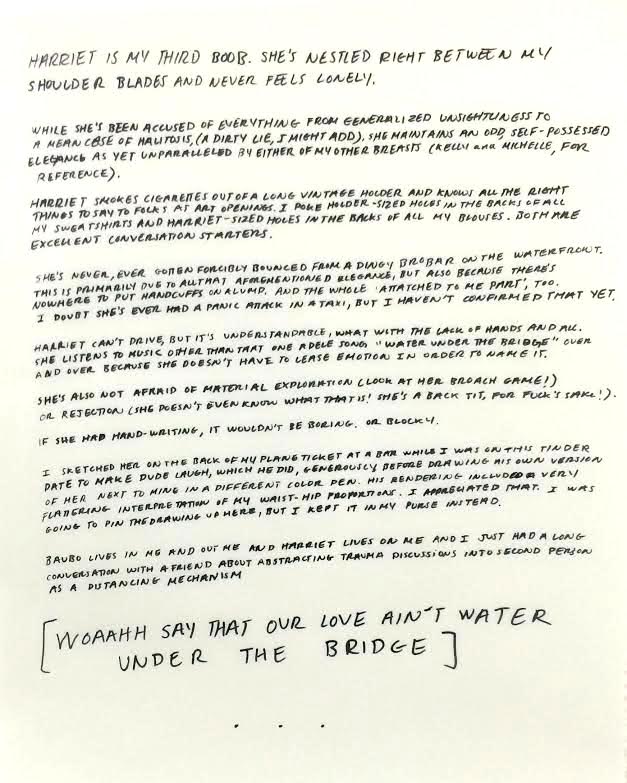 HARRIET IS MY THIRD BOOB. SHE'S NESTLED RIGHT BETWEEN MY
SHOULDER BLADES AND NEVER FEELS LONELY.
WHILE SHE'S BEEN ACCUSED OF EVERYTHING FROM GENERALIZED UNSIGHTLINESS TO
A MEAN CASE OF HALITOSIS, (A DIRTY LIE, I MIGHT ADD). SHE MAINTAINS AN ODD, SELF-POSSESSED
ELEGANCE AS YET UNPARALLELED BY EITHER OF MY OTHER BREASTS (KELLY and MICHELLE, FOR
REFERENCE).
HARRIET SMOKES CIGARETTES OUT OF A LONG VINTAGE HOLDER AND KNOWS ALL THE RIGHT
THINGS TO SAY TO FOLKS AT ART OPENINGS. I POKE HOLDER-SIZED HOLES IN THE BACKS OF ALL
MY SWEATSHIRTS AND HARRIET-SIZED HOLES IN THE BACKS OF ALL MY BLOUSES. BOTH ARE
EXCELLENT CONVERSATION STARTERS.
SHE'S NEVER, EVER GOTTEN FORCIBLY BOUNCED FROM A DINGY BROBAR ON THE WATERFRONT.
THIS IS PRIMARILY DUE TO ALL THAT AFOREMENTIONED ELEGANCE, BUT ALSO BECAUSE THERE'S
NOWHERE TO PUT HANDCUFFS ON A LUMP. AND THE WHOLE 'ATTATCHED TO ME PART', TOO.
I DOUBT SHE'S EVER HAD A PANIC ATTACK IN A TAXI, BUT I HAVEN'T CONFIRMED THAT YET.
HARRIET CAN'T DRIVE, BUT IT'S UNDERSTANDABLE, WHAT WITH THE LACK OF HANDS AND ALL.
SHE LISTENS TO MUSIC OTHER THAN THAT ONE ADELE SONG "WATER UNDER THE BRIDGE" OVER
AND OVER BECAUSE SHE DOESN'T HAVE TO LEASE EMOTION IN ORDER TO NAME IT.
SHE'S ALSO NOT AFRAID OF MATERIAL EXPLORATION (LOOK AT HER BROACH GAME!)
OR REJECTION (SHE DOESN'T EVEN KNOW WHAT THAT IS! SHE'S A BACK TIT, FOR FUCK'S SAKE!).
IF SHE HAD HAND-WRITING, IT WOULDN'T BE BORING. OR BLOCKY.
I SKETCHED HER ON THE BACK OF MY PLANE TICKET AT A BAR WHILE I WAS ON THIS TINDER
DATE TO MAKE DUDE LAUGH, WHICH HE DID, GENEROUSLY BEFORE DRAWING HIS OWN VERSION
OF HER NEXT TO MINE IN A DIFFERENT COLOR PEN. HIS RENDERING INCLUDED A VERY
FLATTERING INTERPRETATION OF MY WAIST-HIP PROPORTIONS. I APPRECIATED THAT. I WAS
GOING TO PIN THE DRAWING UP HERE, BUT I KEPT IT IN MY PURSE INSTEAD.
BAUBO LIVES IN ME AND OUT ME AND HARRIET LIVES ON ME AND I JUST HAD A LONG
CONVERSATION WITH A FRIEND ABOUT ABSTRACTING TRAUMA DISCUSSIONS INTO SECOND PERSON
AS A DISTANCING MECHANISM
[WOAAHH SAY THAT OUR LOVE AIN'T WATER
UNDER THE BRIDGE]
. . .